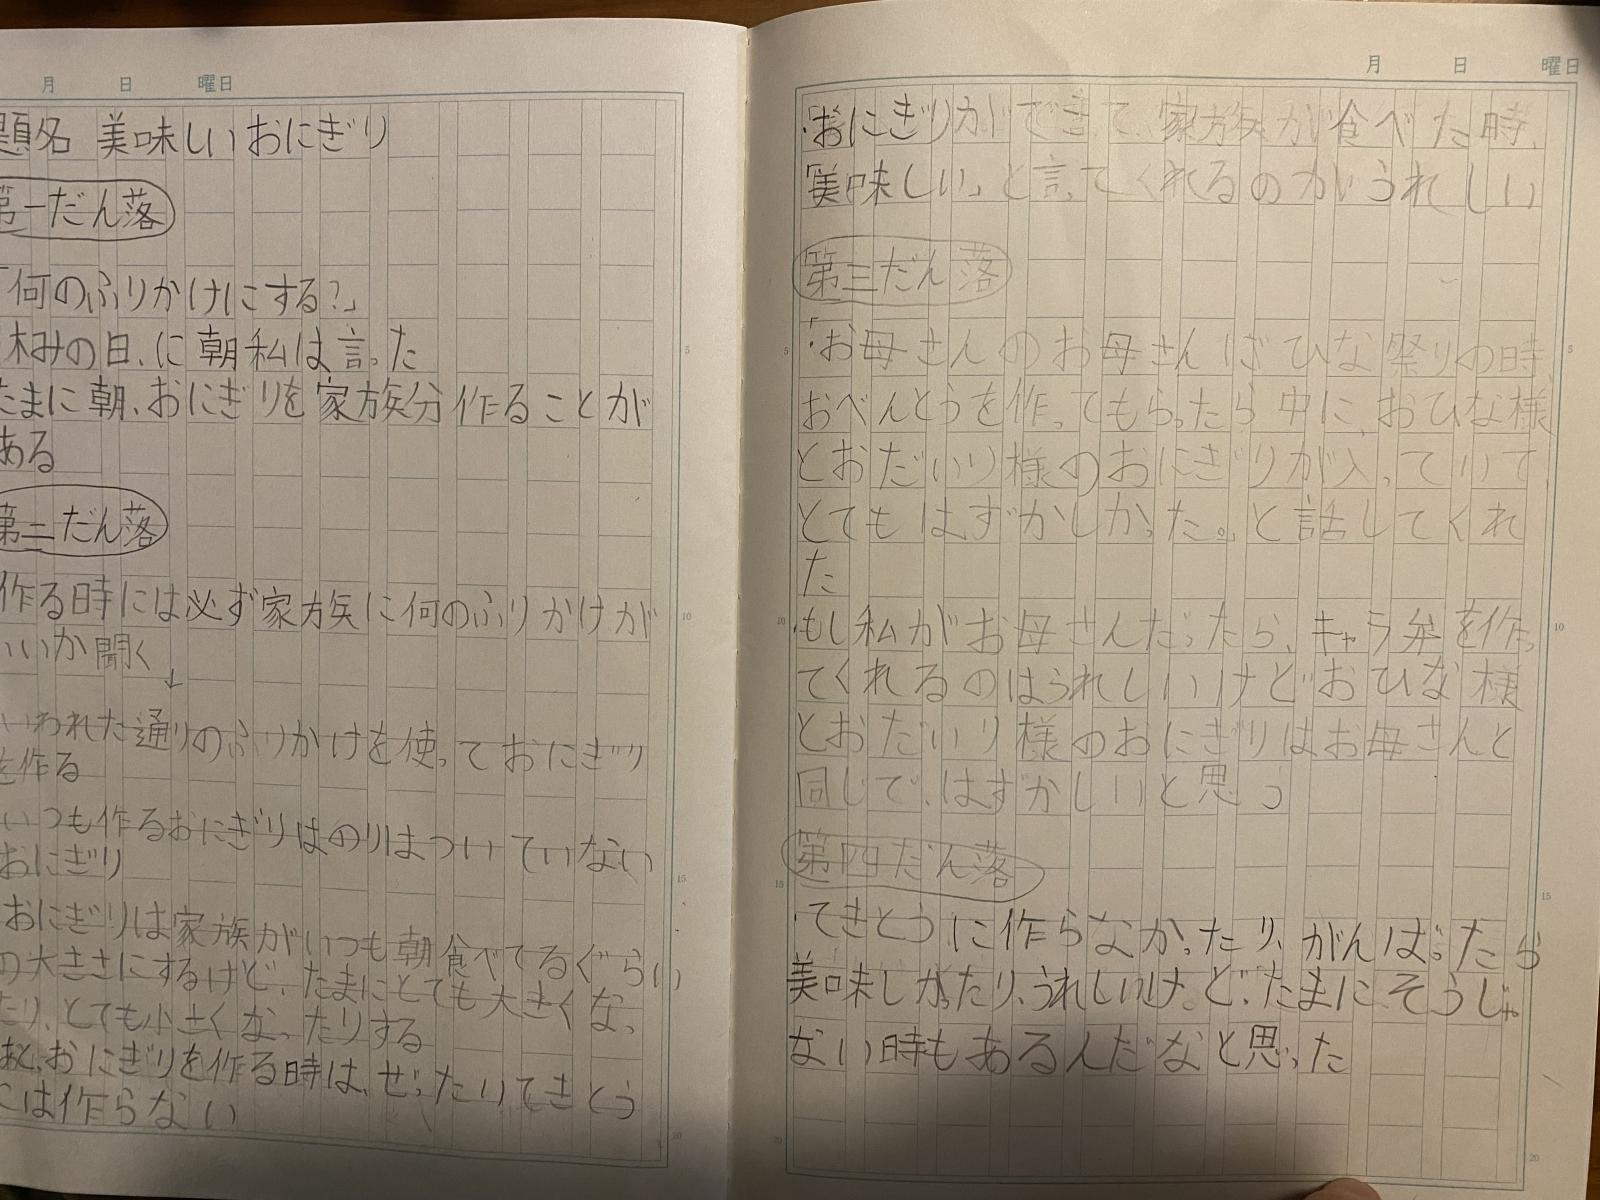 月 日 曜日
題名 美味しいおにぎり
第一だん落
「何のふりかけにする?」
休みの日、に朝私は言った
たまに朝、おにぎりを家族分作ることが
ある
第二だん落
作る時には必ず家族に何のふりかけが
いいか聞く
↓
いわれた通りのふりかけを使っておにぎり
を作る
いつも作るおにぎりはのりはついていない
おにぎり
おにぎりは家族がいつも朝食べてるぐらい
の大きさにするけど、たまにとても大きくなっ
たり、とても小さくなったりする
あと、おにぎりを作る時は、ぜったいてきとう
には作らない
5
10
15
20
月 日 曜日
・おにぎりができて、家族が食べた時、
「美味しい」と言ってくれるのがうれしい
第三だん落
・「お母さんのお母さんにひな祭りの時、
おべんとうを作ってもらったら中に、おひな様
とおだいり様のおにぎりが入っていて
とてもはずかしかった。」と話してくれ
た
・もし私がお母さんだったら、キャラ弁を作っ
てくれるのはうれしいけどおひな様
とおだいり様のおにぎりはお母さんと
同じで、はずかしいと思う
第四だん落
・てきとうに作らなかったり、がんばったら
美味しかったり、うれしいけど、たまにそうじゃ
ない時もあるんだなと思った
5
5
10
10
15
15
20
20